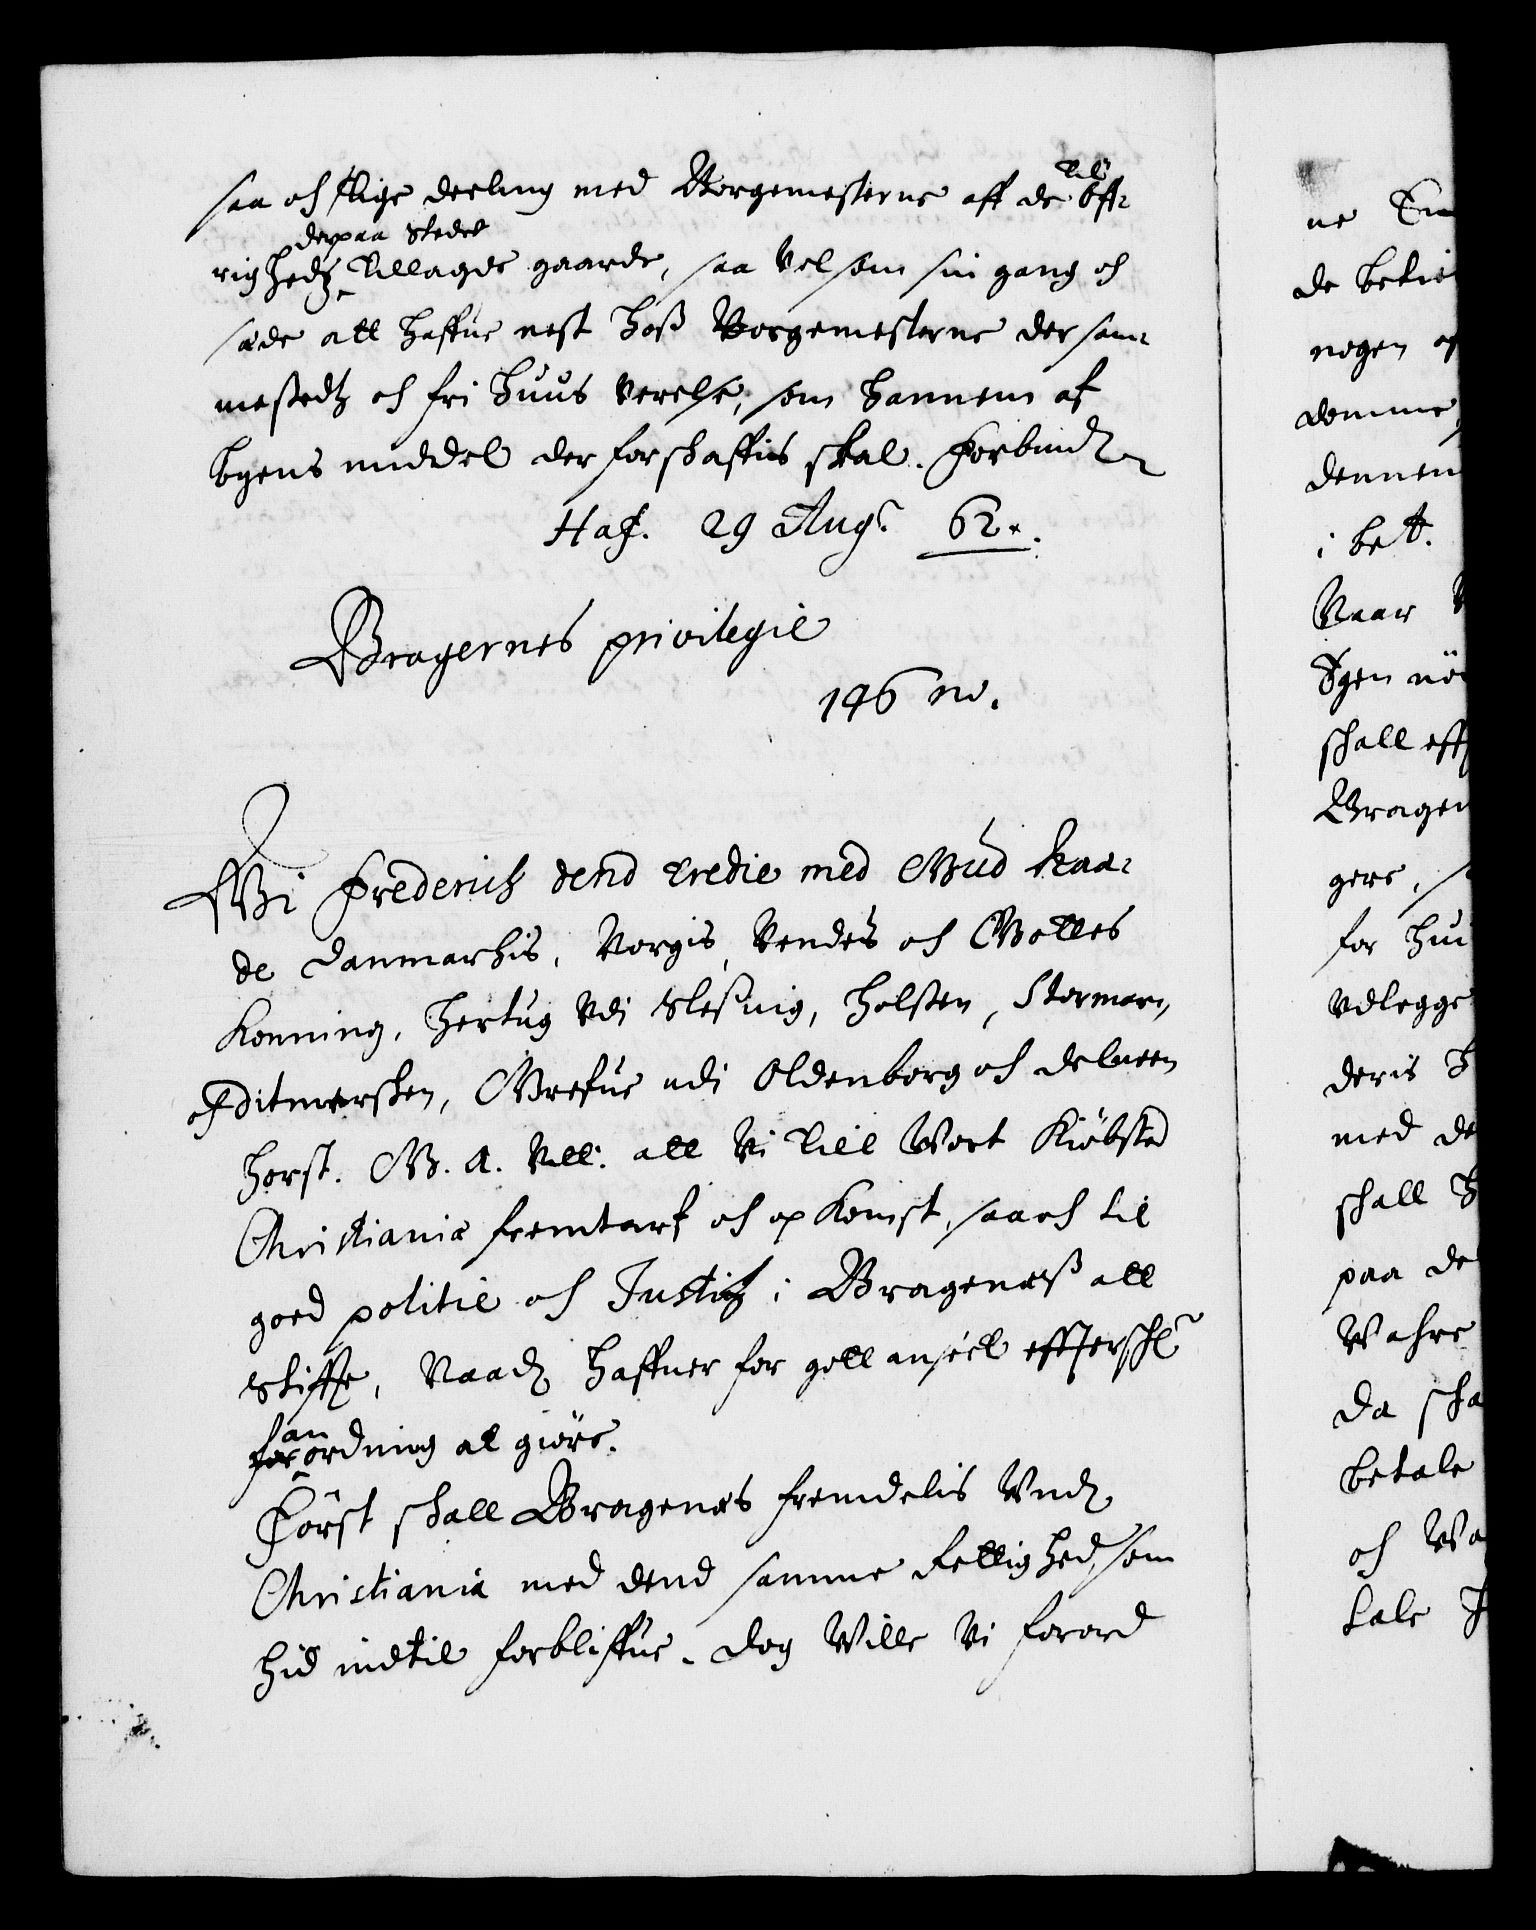 saa och slige deeling med Borgemesterne aff de till öff-
righedtz derpaa stedet tillagde gaarde, saa vel som sin gang och
sæde att haffue nest hoss Borgemesterne der sam-
mestedtz och fri huus verelse, som hannem af
byens middel der forschaffis skal. Forbiud
Haf. 29 Augr 62.
Bragernes privilegie
146 no.
Wi Frederich dend Tredie med Gud Naa-
de Danmarkis, Norgis Vendes och Gottes
Konning, Hertug Vdi Slesuig, Holsten, Stormarn,
oc Ditmersken, Grefue udi Oldenborg och Delmen
horst. G. A. Vitt: att Vi till Wort Kiöbsted
Christania fremtarf och opkomst, saa och til
goed politie och Justitz i Bragenæss att
stiffte, Naadt haffuer for gott anseet effterschr
for anordning at giöre.
Först schall Bragenæs fremdelis Vnd
Christiania med dend samme rettighed som
hid indtil forbliffue. dog Wille Vi forord
ne
de betie
nogen
domme,
dennem
i bet.
Naar
Igen
schall eff
Bragen
gere,
for hui
vdlegge
deris
med de
schall
paa de
Wahre
da scha
betale
och Wa
tale